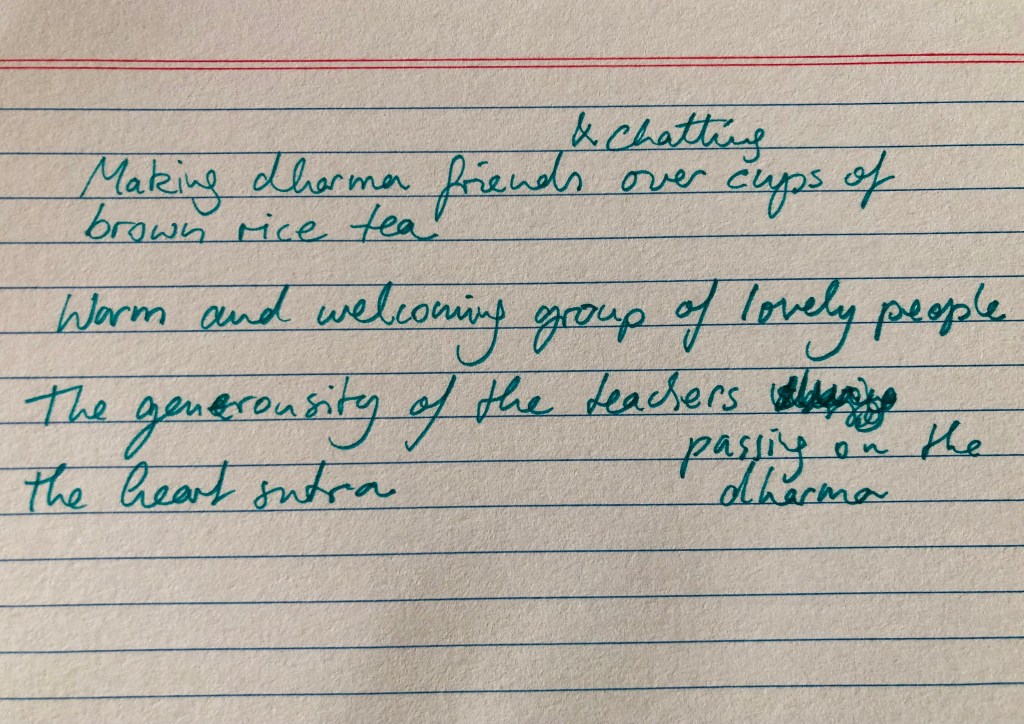 & chatting
Making dharma friends over cups of
brown rice tea
Warm and welcoming group of lovely people
The generousity of the teachers
passing on the
dharma
the heart sutra